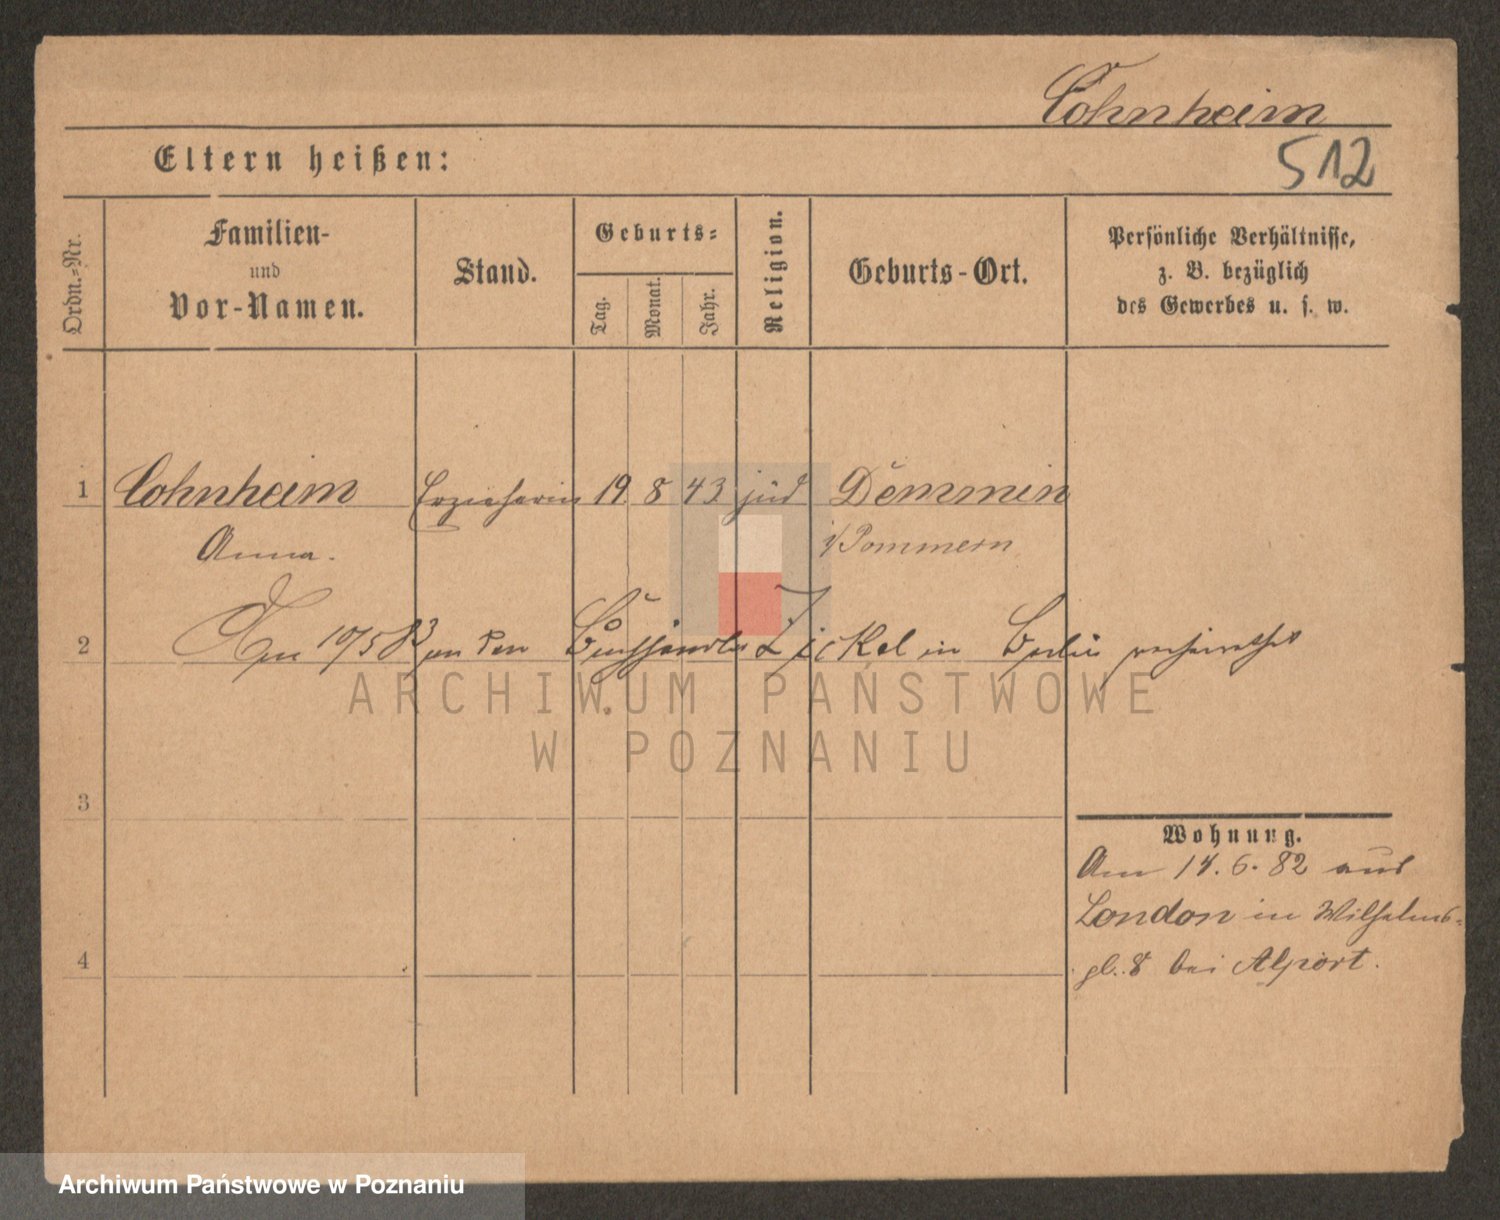 Cohnheim
Eltern heißen:
512
Ordn.-Nr.
Familien-
und
Vor-Namen.
Stand.
Geburts-
Tag.
Monat.
Jahr.
Religion.
Geburts-Ort.
Persönliche Verhältnisse,
z. B. bezüglich
des Gewerbes u. s. w.
1 Cohnheim Erzieherin 19 8 43 jüd Demmin
Anna. i/Pommern
2 Am 10/5 83 an den Buchhändler Zickel in Berlin verheirathet
ARCHIWUM PAŃSTWOWE
W POZNANIU
3
Wohnung.
Am 14. 6. 82 aus
London in Wilhelms-
4
pl. 8 bei Alport.
Archiwum Państwowe w Poznaniu